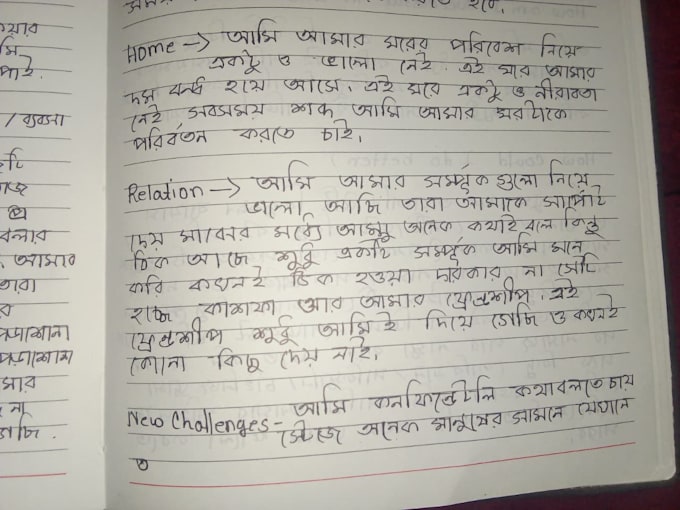 হবে.
Home → আমি আমার ঘরের পরিবেশ নিয়ে
একটু ও ভালো নেই. এই ঘরে আমার
দম বন্ধ হয়ে আসে. এই ঘরে একটু ও নীরাবতা
নেই সবসময় শব্দ আমি আমার ঘরটাকে
পরিবর্তন করতে চাই.
Relation → আমি আমার সম্পর্ক গুলো নিয়ে
ভালো আছি তারা আমাকে সাপোর্ট
দেয় মাঝের মধ্যে আম্মু অনেক কথাই বলে কিন্তু
ঠিক আছে শুধু একটি সম্পর্ক আমি মনে
করি কখনই ঠিক হওয়া দরকার না সেটি
হচ্ছে কাশফা আর আমার ফ্রেন্ডশীপ. এই
ফ্রেন্ডশীপ শুধু আমি ই দিয়ে গেছি ও কখনই
কোনো কিছু দেয় নাই.
New Challenges - আমি কনফিডেন্টলি কথা বলতে চায়
স্টেজে অনেক মানুষের সামনে যেখানে
পাই.
/ ব্যবসা
বলার
আমার
তারা
পড়াশোনা
মার
না